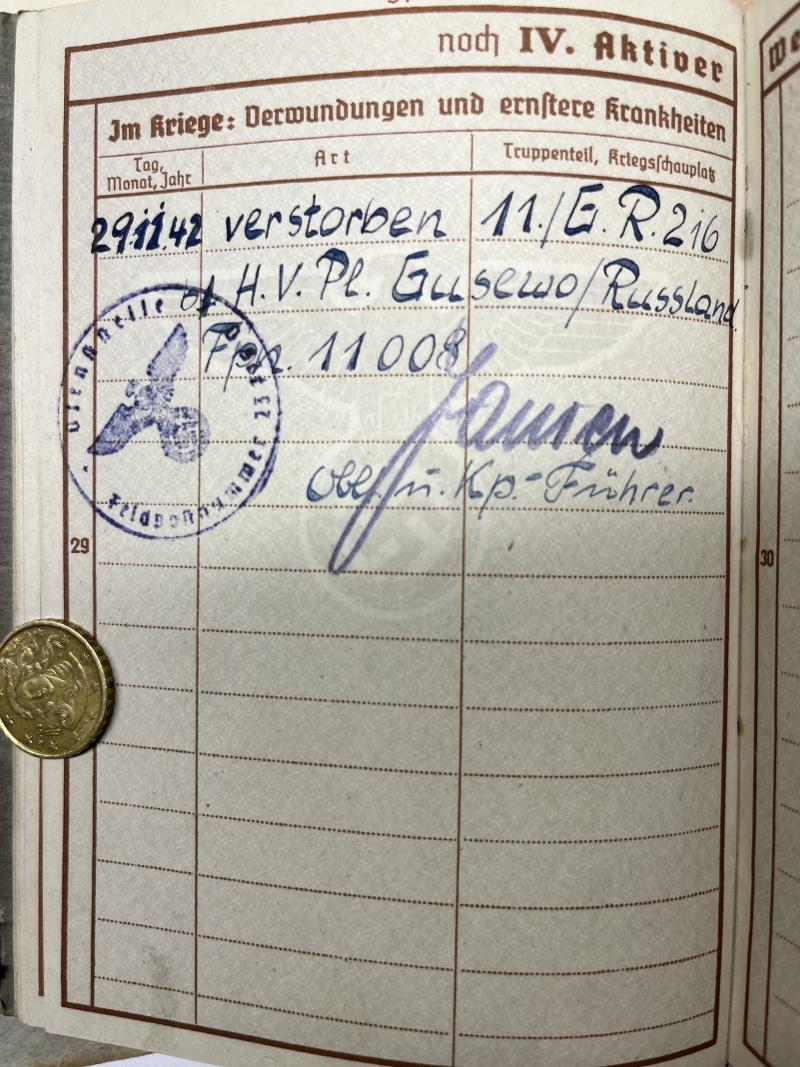 noch IV. Aktiver
Im Kriege: Verwundungen und ernstere Krankheiten
Tag, Monat, Jahr
Art
Truppenteil, Kriegsschauplatz
29.11.42 verstorben 11./G.R.216
H.V.Pl. Gusewo/Russland.
Fpn. 11008
Jansen
u. Kp.-Führer.
Dienststelle
Feldpostnummer
29
30